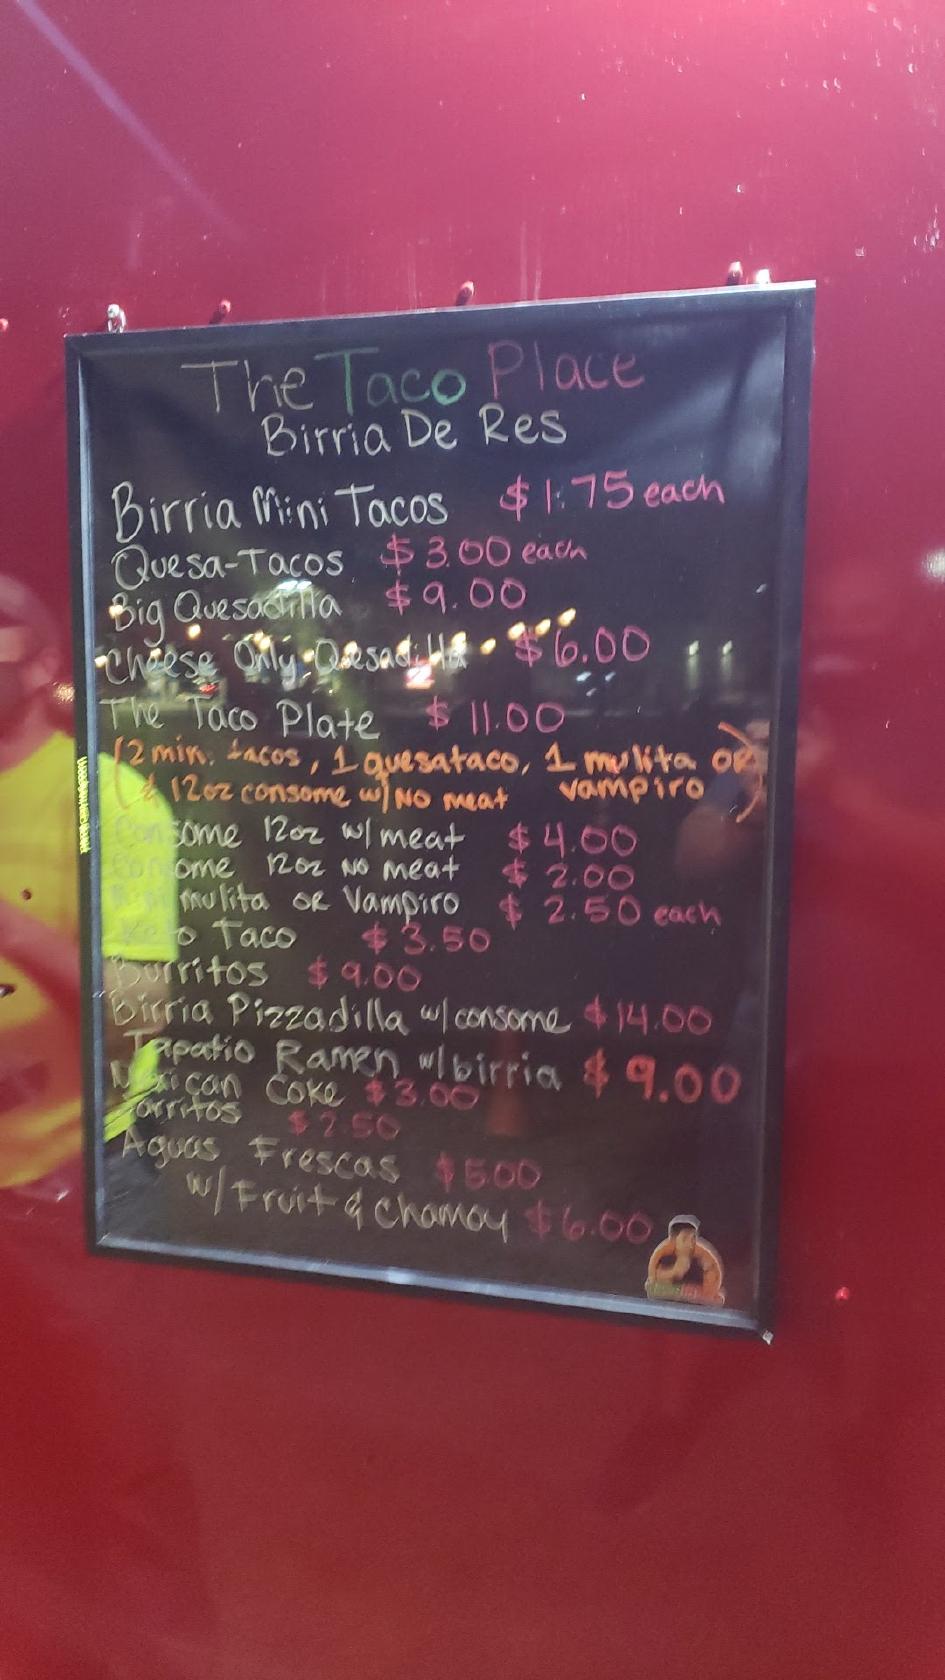 The Taco Place
Birria De Res
Birria Mini Tacos $1.75 each
Quesa-Tacos $3.00 each
Big Quesadilla $9.00
Cheese Only Quesadilla $6.00
The Taco Plate $11.00
(2 mini tacos, 1 quesataco, 1 mulita OR
& 12oz consome w/ NO meat vampiro)
Consome 12oz w/ meat $4.00
Consome 12oz NO meat $2.00
Mini mulita OR Vampiro $2.50 each
Keto Taco $3.50
Burritos $9.00
Birria Pizzadilla w/ consome $14.00
Tapatio Ramen w/ birria $9.00
Mexican Coke $3.00
Jarritos $2.50
Aguas Frescas $5.00
w/ Fruit & Chamoy $6.00